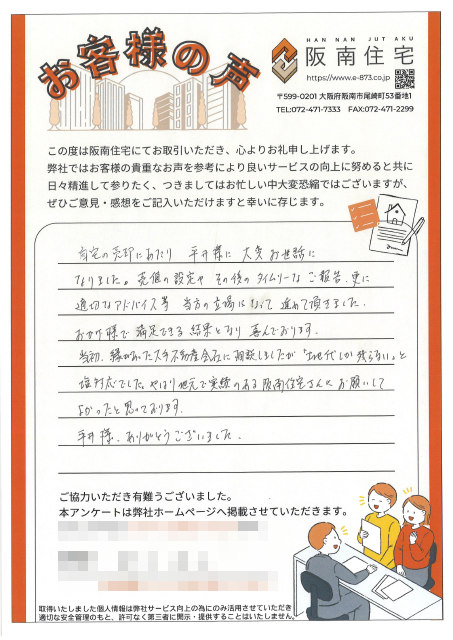 お客様の声
HAN NAN JUTAKU
阪南住宅
https://www.e-873.co.jp
〒599-0201 大阪府阪南市尾崎町53番地1
TEL:072-471-7333 FAX:072-471-2299
この度は阪南住宅にてお取引いただき、心よりお礼申し上げます。
弊社ではお客様の貴重なお声を参考により良いサービスの向上に努めると共に
日々精進して参りたく、つきましてはお忙しい中大変恐縮ではございますが、
ぜひご意見・感想をご記入いただけますと幸いに存じます。
自宅の売却にあたり 平井様に 大変お世話に
なりました。売値の設定や その後のタイムリーなご報告、更に
適切なアドバイス等 当方の立場になって 進めて頂きました。
おかげ様で 満足できる結果となり 喜んでおります。
当初、縁があった大手不動産会社に相談しましたが「土地代しか残らない」と
塩対応でした。やはり地元で実績のある阪南住宅さんに お願いして
よかったと思っております。
平井様、ありがとうございました。
ご協力いただき有難うございました。
本アンケートは弊社ホームページへ掲載させていただきます。
取得いたしました個人情報は弊社サービス向上の為にのみ活用させていただき
適切な安全管理のもと、許可なく第三者に開示・提供することはいたしません。